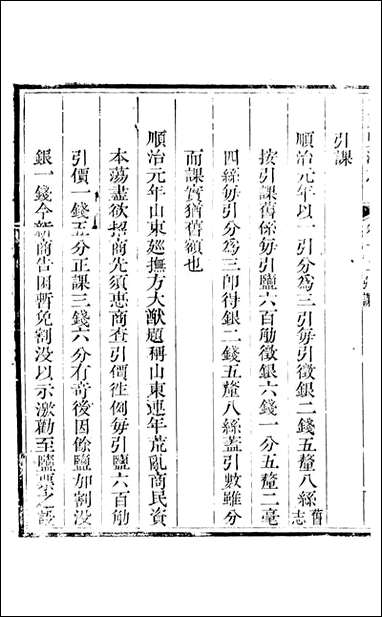 引課
順治元年以一引分爲三引每引徵銀二錢五釐八絲舊志
按引課舊係每引鹽六百觔徵銀六錢一分五釐二毫
四絲每引分爲三卽得銀二錢五釐八絲蓋引數雖分
而課實猶舊額也
順治元年山東廵撫方大猷題稱山東連年荒亂商民資
本蕩盡欲招商先須恵商查引價徃例每引鹽六百觔
引價一錢五分正課三錢六分有奇後因餘鹽加割没
銀一錢今新商告困暫免割没以示激勸至鹽票之設